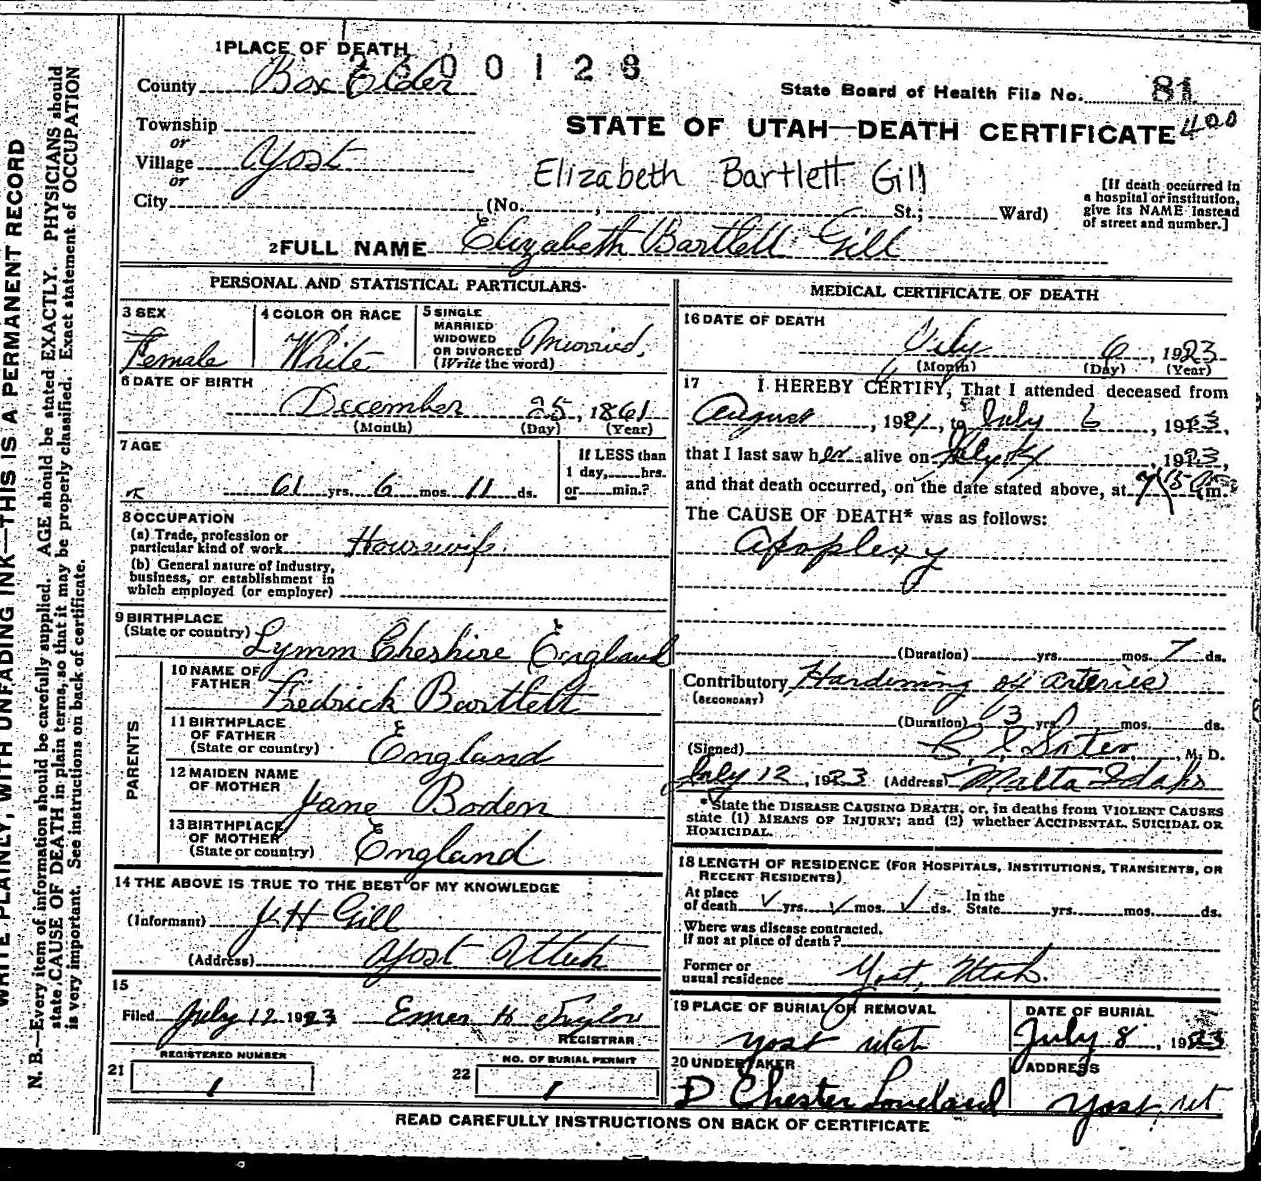 1 PLACE OF DEATH
2300128
County Box Elder
State Board of Health File No. 81
Township
or
STATE OF UTAH—DEATH CERTIFICATE 400
Village Yost
or
Elizabeth Bartlett Gill
City (No. , St.; Ward)
[If death occurred in a hospital or institution, give its NAME instead of street and number.]
2 FULL NAME Elizabeth Bartlett Gill
PERSONAL AND STATISTICAL PARTICULARS
3 SEX
Female
4 COLOR OR RACE
White
5 SINGLE
MARRIED
WIDOWED
OR DIVORCED
(Write the word)
Married.
6 DATE OF BIRTH
December 25, 1861
(Month) (Day) (Year)
7 AGE
61 yrs. 6 mos. 11 ds.
If LESS than
1 day, hrs.
or min.?
8 OCCUPATION
(a) Trade, profession or
particular kind of work Housewife
(b) General nature of industry,
business, or establishment in
which employed (or employer)
9 BIRTHPLACE
(State or country) Lymm Cheshire England
PARENTS
10 NAME OF
FATHER Fredrick Bartlett
11 BIRTHPLACE
OF FATHER
(State or country) England
12 MAIDEN NAME
OF MOTHER Jane Boden
13 BIRTHPLACE
OF MOTHER
(State or country) England
14 THE ABOVE IS TRUE TO THE BEST OF MY KNOWLEDGE
(Informant) J. H Gill
(Address) Yost Uttah
15
Filed July 12 1923 Emer H Taylor
REGISTRAR
21 REGISTERED NUMBER
1
22 NO. OF BURIAL PERMIT
1
MEDICAL CERTIFICATE OF DEATH
16 DATE OF DEATH
July 6, 1923
(Month) (Day) (Year)
17 I HEREBY CERTIFY, That I attended deceased from
August, 1921, to July 6, 1923,
that I last saw her alive on July, 1923,
and that death occurred, on the date stated above, at 7 15 m.
The CAUSE OF DEATH* was as follows:
Apoplexy
(Duration) yrs. mos. 7 ds.
Contributory Hardining of arteries
(SECONDARY)
(Duration) 3 yrs. mos. ds.
(Signed) M. D.
July 12, 1923 (Address) Malta Idaho
*State the DISEASE CAUSING DEATH, or, in deaths from VIOLENT CAUSES
state (1) MEANS OF INJURY; and (2) whether ACCIDENTAL, SUICIDAL OR
HOMICIDAL.
18 LENGTH OF RESIDENCE (FOR HOSPITALS, INSTITUTIONS, TRANSIENTS, OR
RECENT RESIDENTS)
At place
of death ✓ yrs. ✓ mos. ✓ ds. In the
State yrs. mos. ds.
Where was disease contracted,
If not at place of death?
Former or
usual residence Yost, Utah.
19 PLACE OF BURIAL OR REMOVAL
Yost Utah
DATE OF BURIAL
July 8, 1923
20 UNDERTAKER
D Chester Loveland
ADDRESS
Yost, Ut
READ CAREFULLY INSTRUCTIONS ON BACK OF CERTIFICATE
WRITE PLAINLY, WITH UNFADING INK—THIS IS A PERMANENT RECORD
N. B.—Every item of information should be carefully supplied. AGE should be stated EXACTLY. PHYSICIANS should
state CAUSE OF DEATH in plain terms, so that it may be properly classified. Exact statement of OCCUPATION
is very important. See instructions on back of certificate.